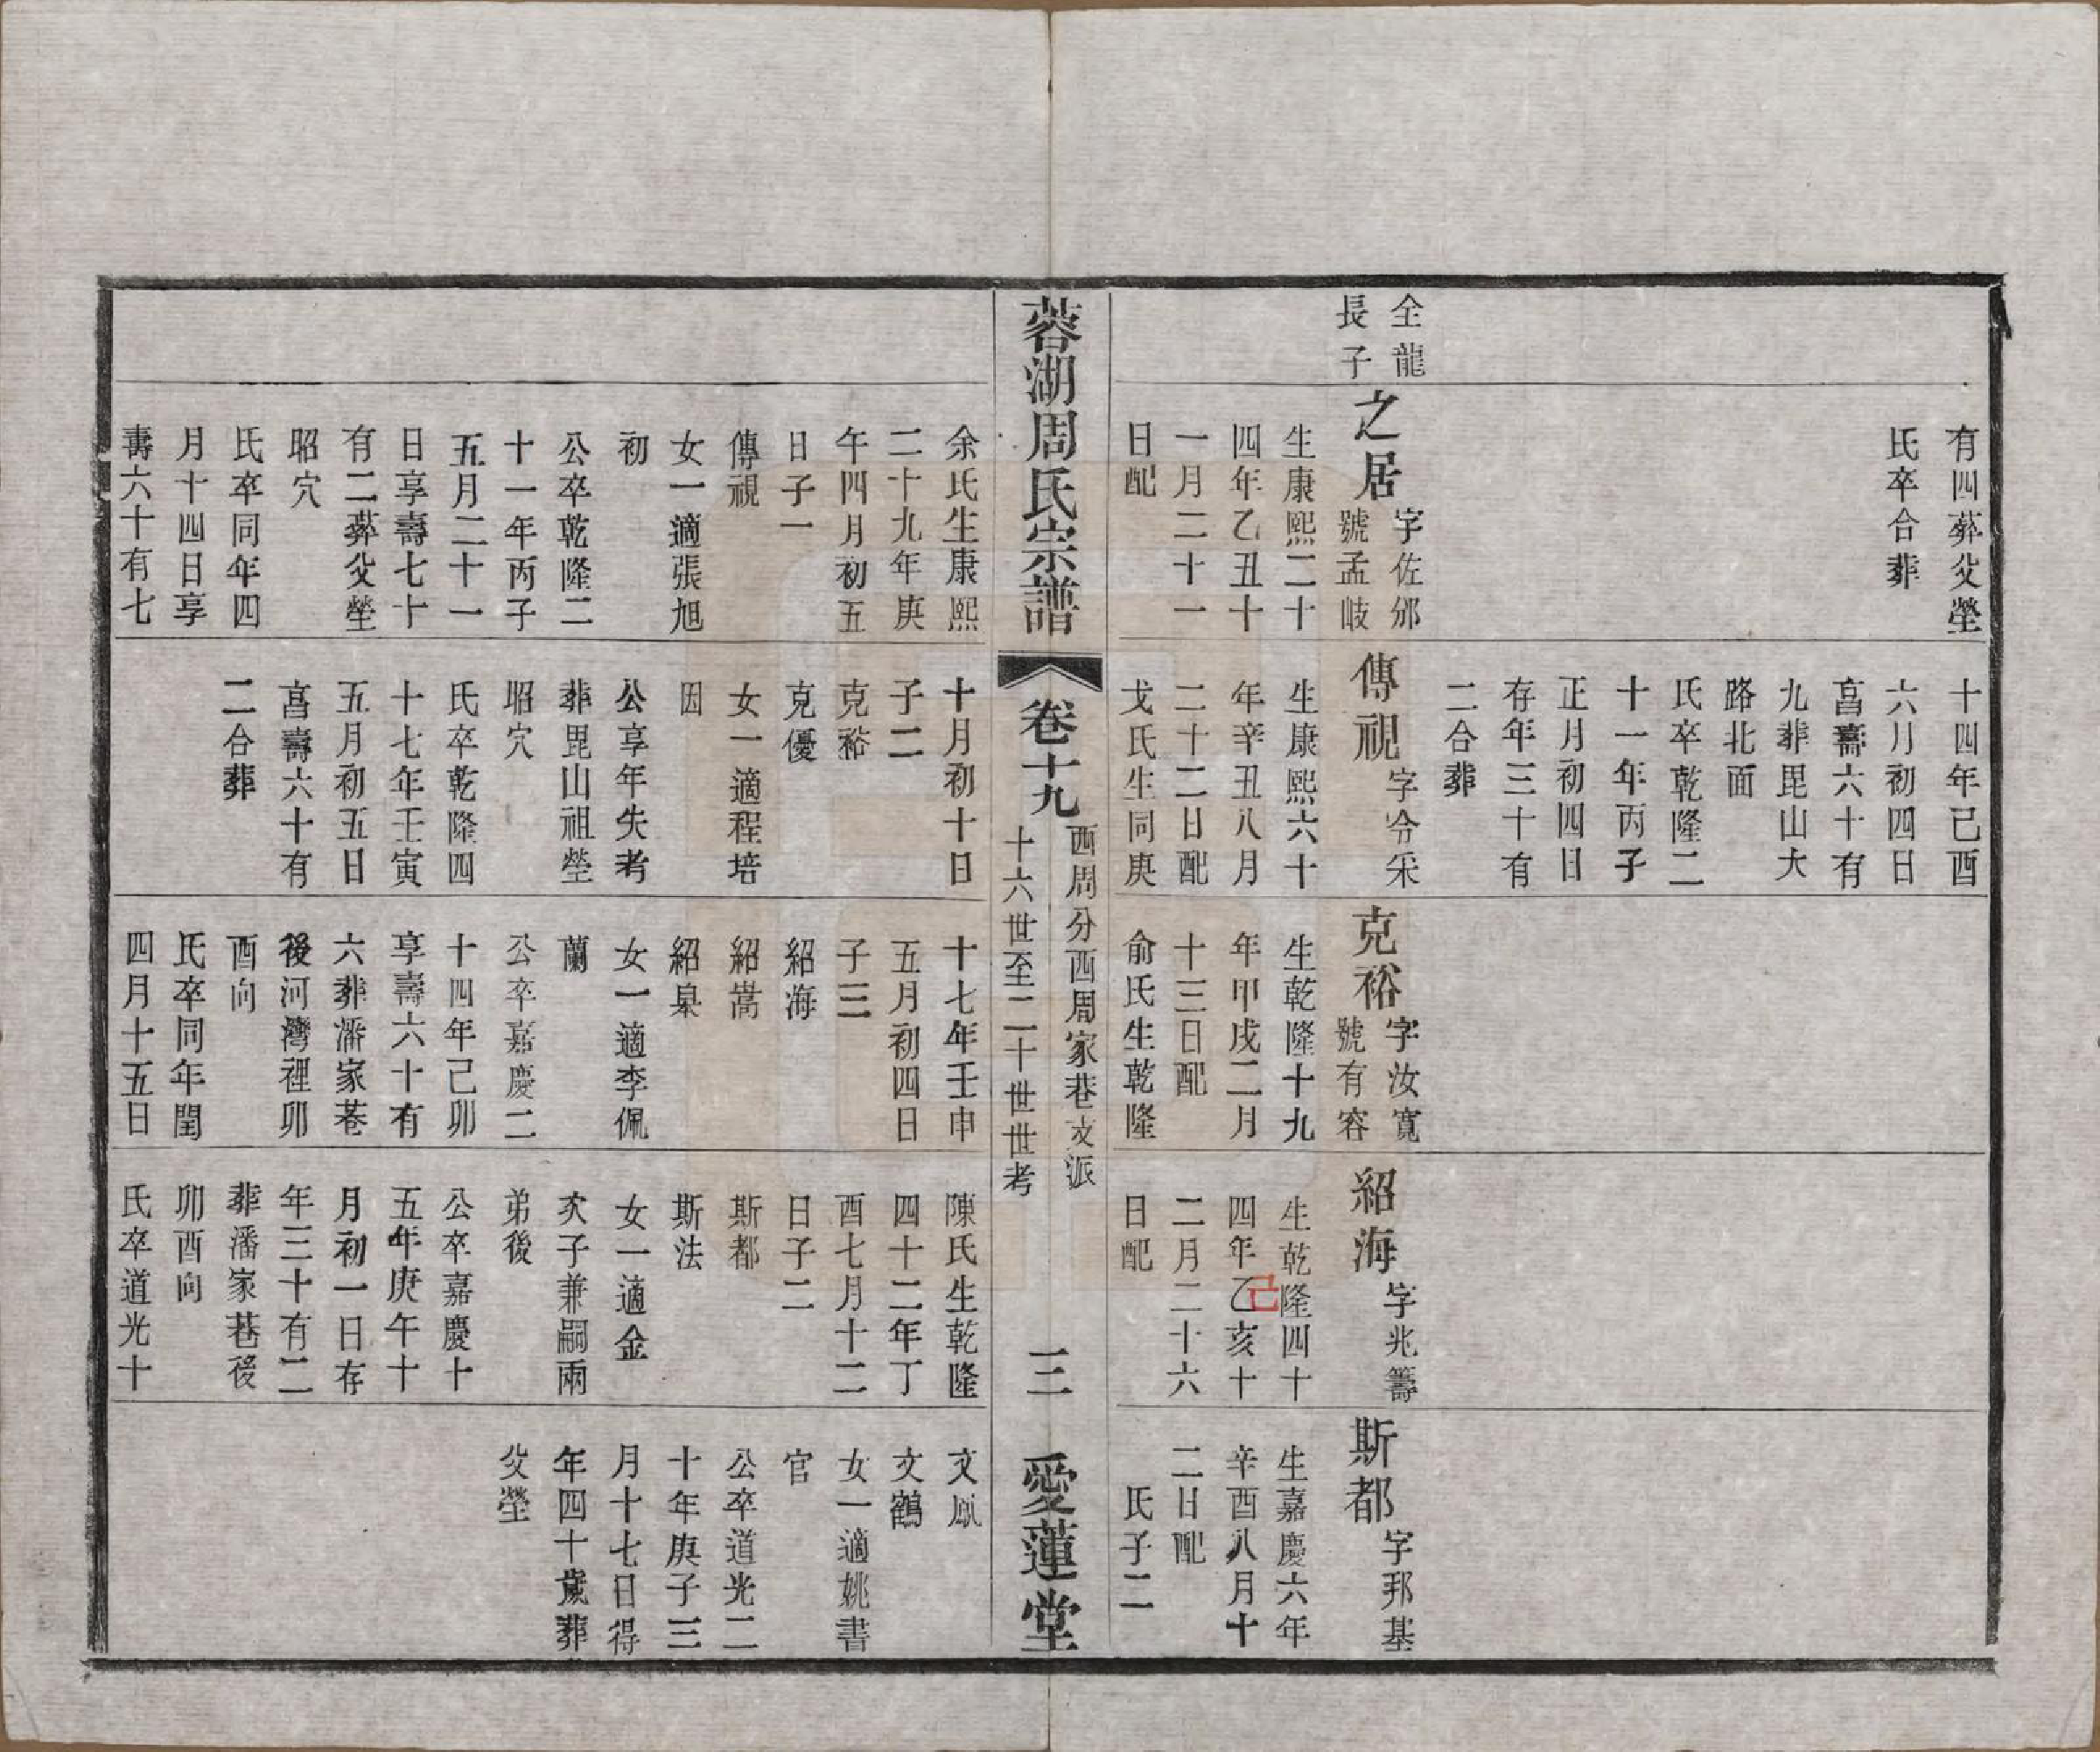 有四葬父塋
氏卒合葬
十四年己酉
六月初四日
享壽六十有
九葬毘山大
路北面
氏卒乾隆二
十一年丙子
正月初四日
存年三十有
二合葬
全龍
長子
之居
字佐邠
號孟岐
生康熙二十
四年乙丑十
一月二十一
日配
傳視
字令采
生康熙六十
年辛丑八月
二十二日配
戈氏生同庚
克裕
字汝寬
號有容
生乾隆十九
年甲戌二月
十三日配
俞氏生乾隆
紹海
字兆籌
生乾隆四十
四年乙亥十
己
二月二十六
日配
斯都
字邦基
生嘉慶六年
辛酉八月十
二日配
氏子二
蓉湖周氏宗譜
卷十九
西周分西周家巷文派
十六世至二十世世考
三
愛蓮堂
余氏生康熙
二十九年庚
午四月初五
日子一
傳視
女一適張旭
初
公卒乾隆二
十一年丙子
五月二十一
日享壽七十
有二葬父塋
昭穴
氏卒同年四
月十四日享
壽六十有七
十月初十日
子二
克裕
克優
女一適程培
因
公享年失考
葬毘山祖塋
昭穴
氏卒乾隆四
十七年壬寅
五月初五日
享壽六十有
二合葬
十七年壬申
五月初四日
子三
紹海
紹嵩
紹臯
女一適李佩
蘭
公卒嘉慶二
十四年己卯
享壽六十有
六葬潘家巷
後河灣裡卯
酉向
氏卒同年閏
四月十五日
陳氏生乾隆
四十二年丁
酉七月十二
日子二
斯都
斯法
女一適金
次子兼嗣兩
弟後
公卒嘉慶十
五年庚午十
月初一日存
年三十有二
葬潘家巷後
卯酉向
氏卒道光十
文鳳
文鶴
女一適姚書
官
公卒道光二
十年庚子三
月十七日得
年四十歲葬
父塋